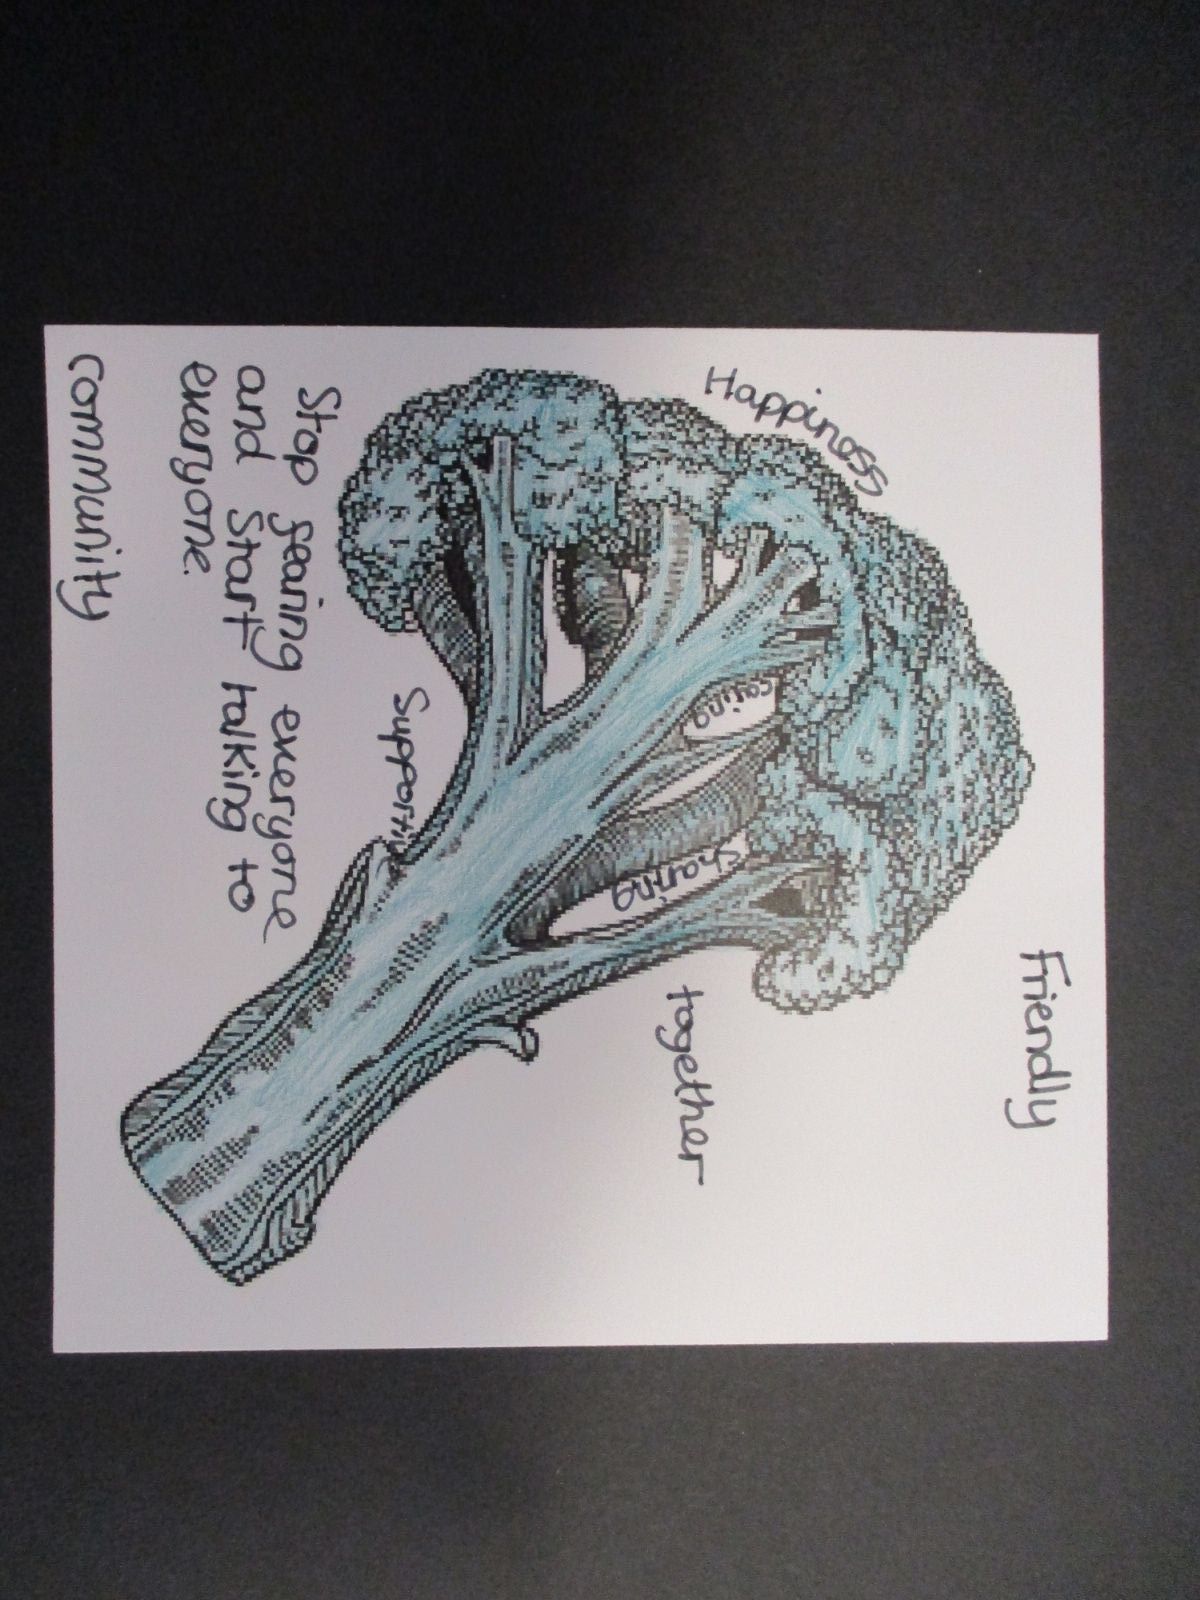 Friendly
Happiness
together
caring
sharing
Supportive
Stop fearing everyone
and Start talking to
everyone.
Community